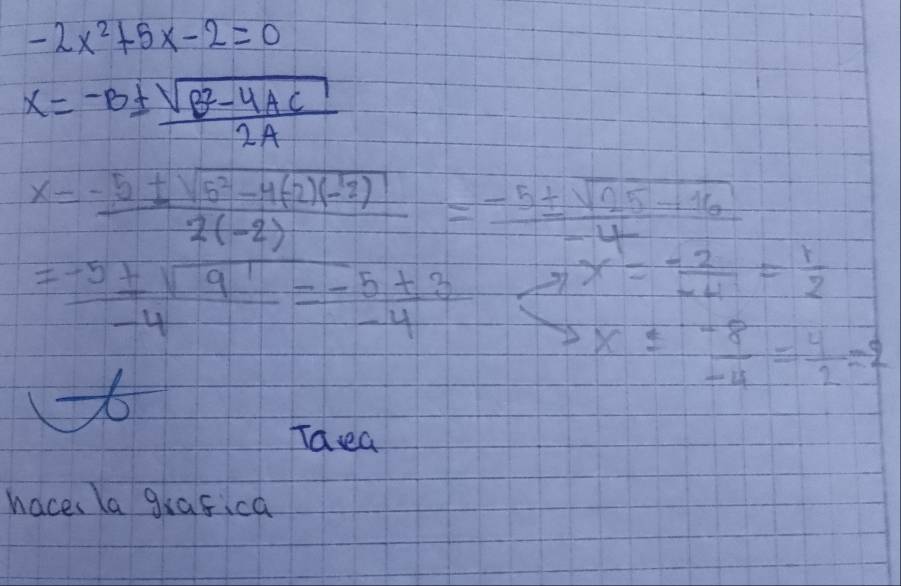 -2x²+5x-2=0
x = -B±√B²-4AC / 2A
x = -5±√5²-4(-2)(-2) / 2(-2) = -5±√25-16 / -4
= -5±√9 / -4 = -5±3 / -4 → x = -2/-4 = 1/2
→ x = -8/-4 = 4/2 = 2
Tarea
hacer la grafica